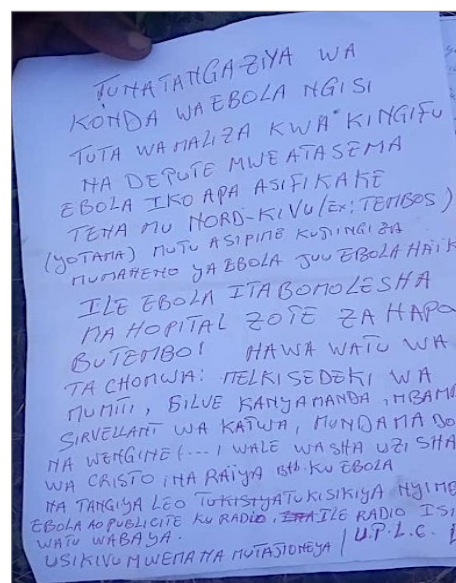 TUNATANGAZIYA WA
KONDA WA EBOLA NGISI
TUTA WAMALIZA KWA KINGIFU
NA DEPUTE MWE ATASEMA
EBOLA IKO APA ASIFIKAKE
TENA MU NORD-KIVU (Ex: TEMBOS)
(YOTAMA) MUTU ASIPIME KUJINGIZA
MUMANENO YA EBOLA JUU EBOLA HAIK
ILE EBOLA ITABOMOLESHA
MA HOPITAL ZOTE ZA HAPO
BUTEMBO! HAWA WATU WA
TA CHOMWA: MELKISEDEKI WA
MUMITI, BILVE KANYAMANDA, MBAMA
SIRVELLANT WA KATWA, MUNDAMA BO
NA WENGINE (... WALE WASHA UZISHA
WA CRISTO INA RAIYA KU EBOLA
NA TANGIYA LEO TUKISIKIYA NYIMB
EBOLA AO PUBLICITE KU RADIO, ILE RADIO ISI
WATU WABAYA.
USIKIVU MWEMA NA MUTAJIONEYA / U.P.L.C.